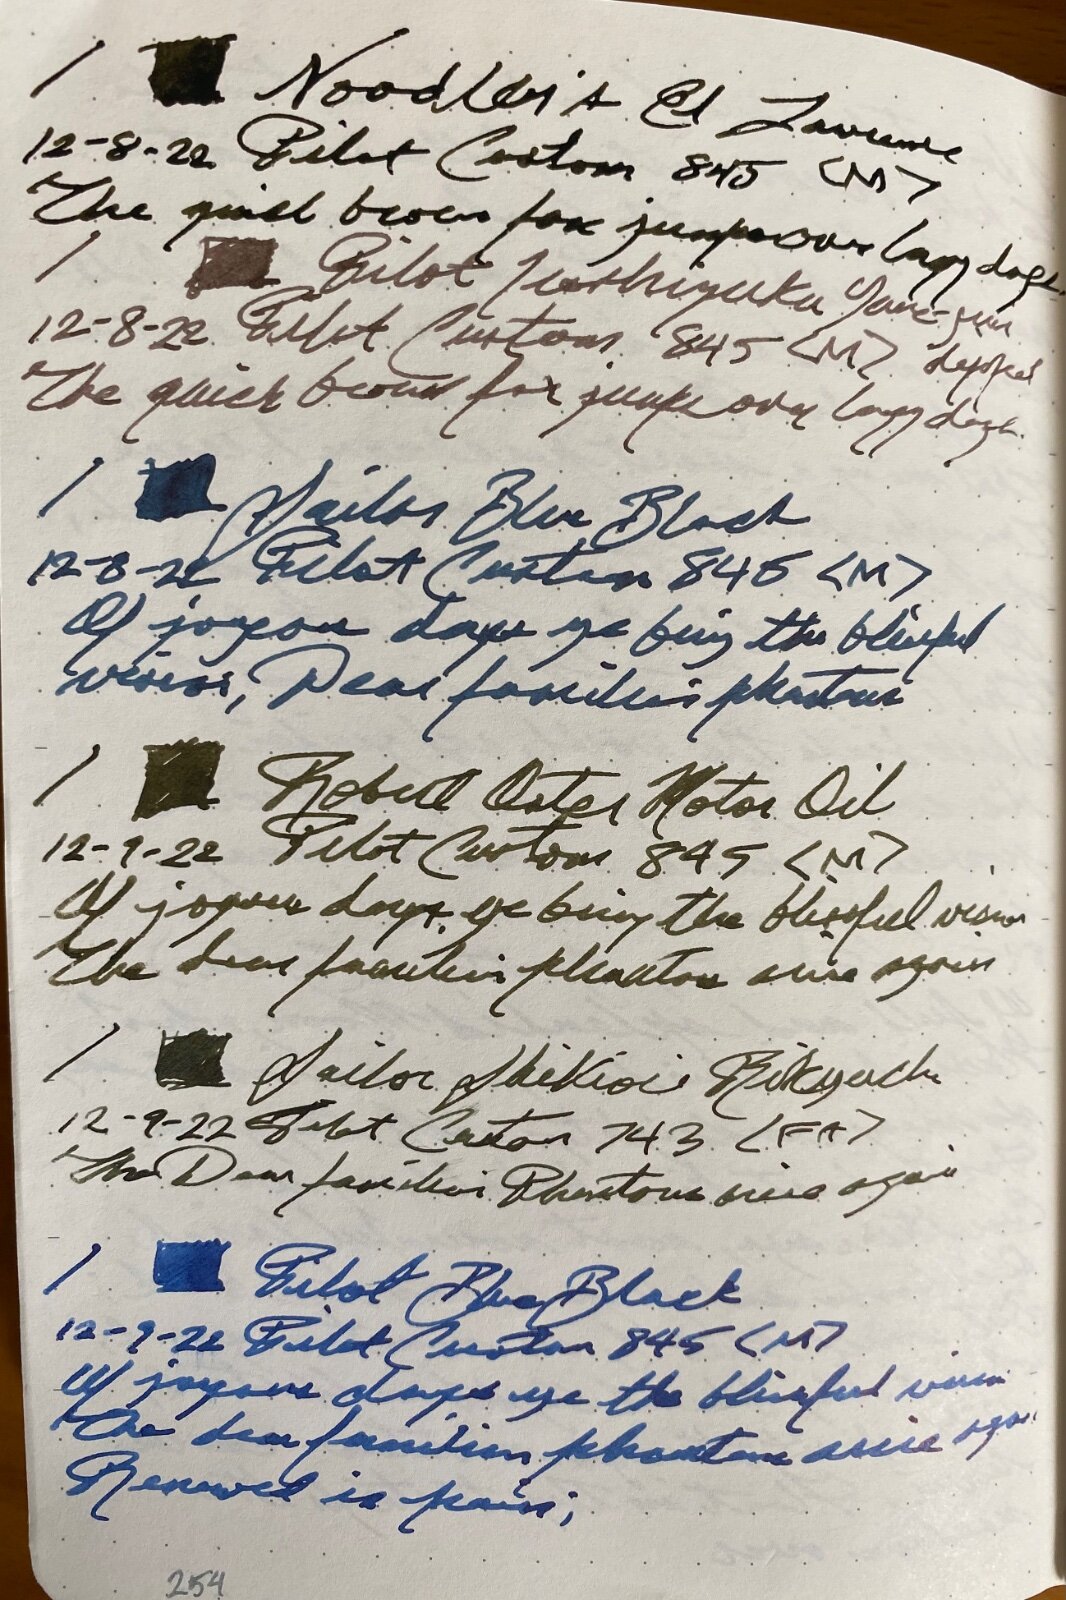 1 Noodler's El Lawrence
12-8-22 Pilot Custom 845 <M>
The quick brown fox jumps over lazy dogs.
1 Pilot Iroshizuku Yama-guri
12-8-22 Pilot Custom 845 <M> dipped
The quick brown fox jumps over lazy dogs.
1 Sailor Blue Black
12-8-22 Pilot Custom 845 <M>
Of joyous days ye bring the blissful
vision, Dear familiar phantoms
1 Robert Oster Motor Oil
12-9-22 Pilot Custom 845 <M>
Of joyous days, ye bring the blissful vision
The dear familiar phantoms arise again
1 Sailor Shikiori Rikyucha
12-9-22 Pilot Custom 743 <FA>
The Dear familiar Phantoms arise again
1 Pilot Blue Black
12-9-22 Pilot Custom 845 <M>
Of joyous days ye the blissful vision
The dear familiar phantoms arise again
Renewed is pain;
254